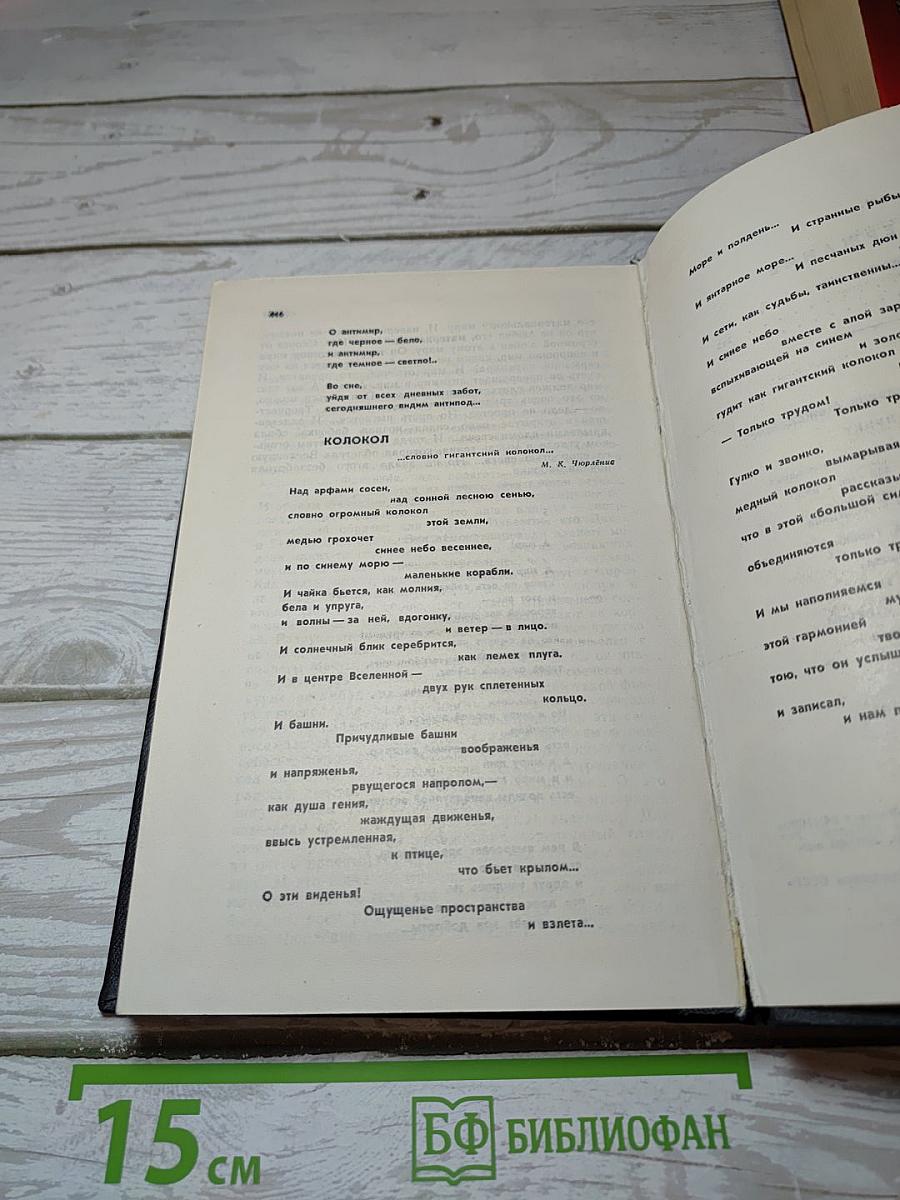 О антимир,
где черное — бело,
и антимир,
где темное — светло!..
Во сне,
уйдя от всех дневных забот,
сегодняшнего видим антипод...
КОЛОКОЛ
...словно гигантский колокол...
М. К. Чюрлёнис
Над арфами сосен,
над сонной лесною сенью,
словно огромный колокол
этой земли,
медью грохочет
синее небо весеннее,
и по синему морю —
маленькие корабли.
И чайка бьется, как молния,
бела и упруга,
и волны — за ней, вдогонку,
и ветер — в лицо.
И солнечный блик серебрится,
как лемех плуга.
И в центре Вселенной —
двух рук сплетенных
кольцо.
И башни.
Причудливые башни
воображенья
и напряженья,
рвущегося напролом,—
как душа гения,
жаждущая движенья,
ввысь устремленная,
к птице,
что бьет крылом...
О эти виденья!
Ощущенье пространства
и взлета...
Море и полдень...
И странные рыбы
И янтарное море...
И песчаных дюн
И сети, как судьбы, таинственны...
И синее небо
вместе с алой
вспыхивающей на синем
и
гудит как гигантский колокол
— Только трудом!
Только
Гулко и звонко,
медный колокол
вымарывая
что в этой «большой
объединяются
только
И мы наполняемся
этой гармонией
тою, что он
и записал,
и нам
15 см
БФ БИБЛИОФАН